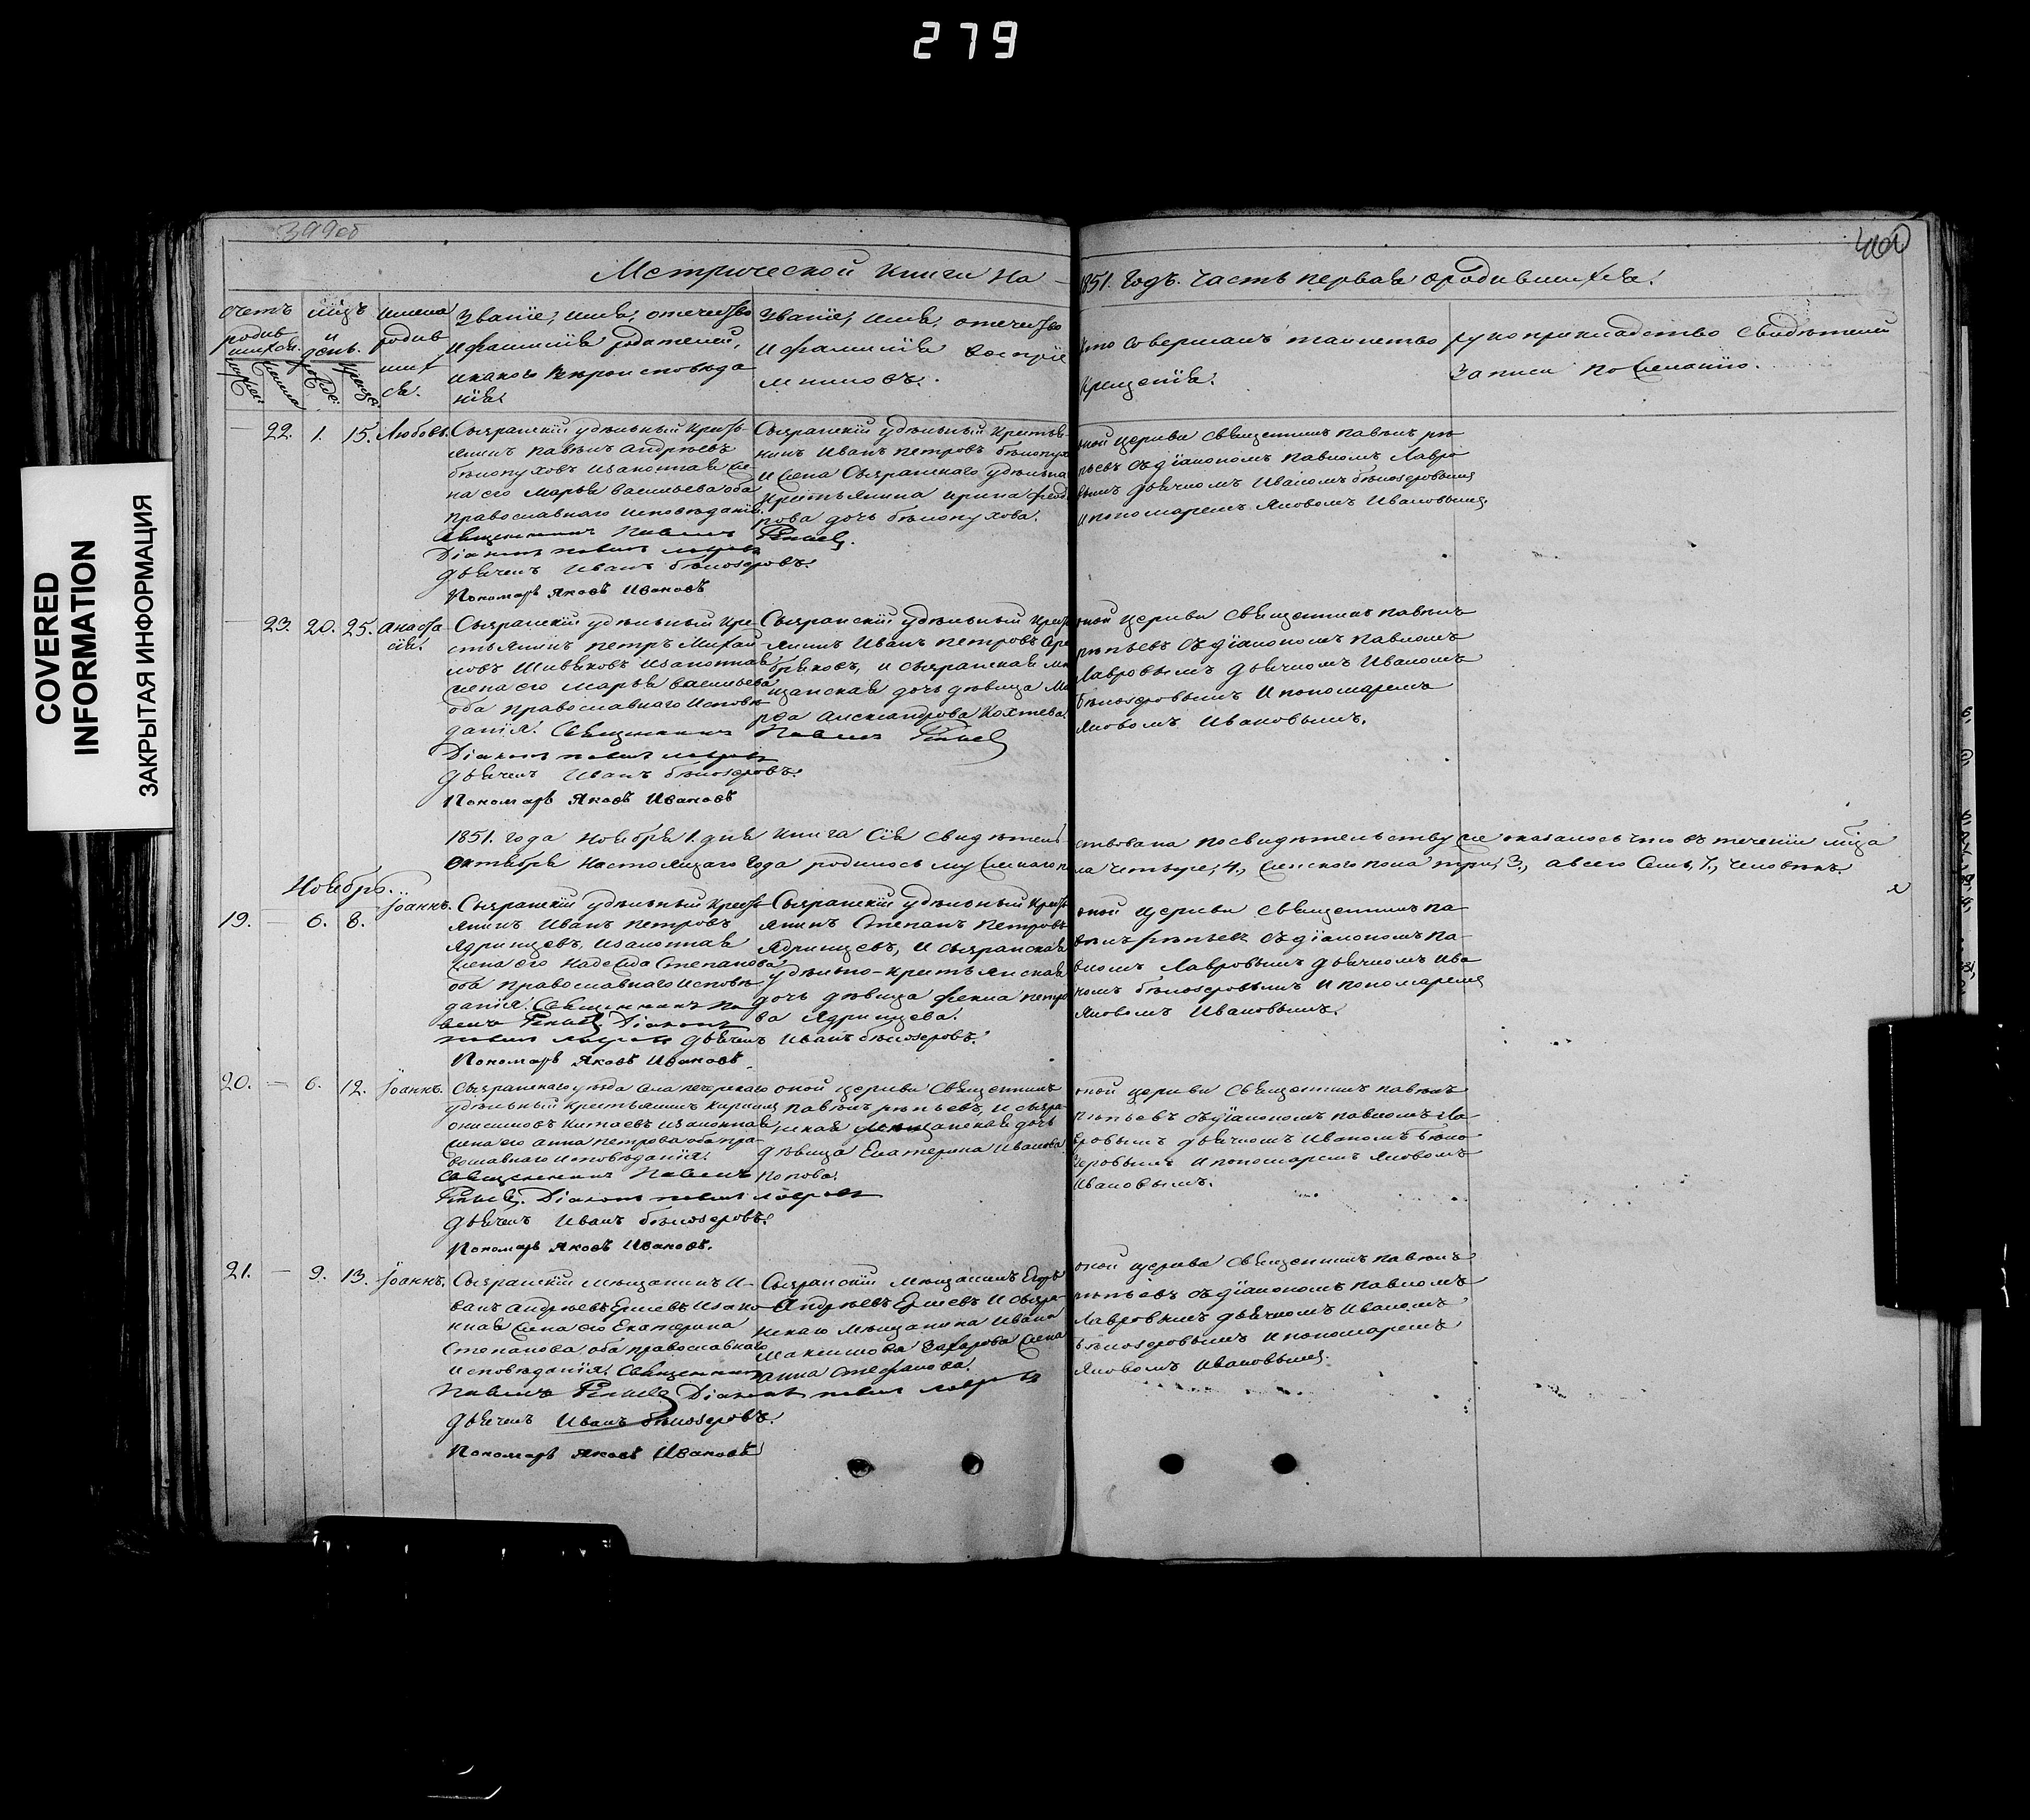 279
COVERED
INFORMATION
ЗАКРЫТАЯ ИНФОРМАЦИЯ
399об
400
Метрической книги на 1851. Годъ. часть первая о родившихся.
счетъ родившихся.
мцъ и день.
имена родившихся.
Званіе, имя, отечество
и фамилія родителей,
и какого вѣроисповѣда
нія.
Званіе, имя, отечество
и фамилія воспріе
мниковъ.
Кто совершалъ таинство
крещенія.
рукоприкладство свидѣтелей
записи по желанію.
22. 1. 15. Любовь.
Сызранскій удѣльный кресть-
янинъ Павелъ Андрѣевъ
бѣлопуховъ и законная же
на его Марья васильева оба
православнаго исповѣданія.
Священникъ Павелъ Рѣпьевъ.
Діаконъ павелъ лавровъ
дьячекъ Иванъ бѣлозеровъ.
Пономарь Яковъ Ивановъ
Сызранскій удѣльный крестья-
нинъ Иванъ петровъ бѣлопухо
и жена Сызранскаго удѣльна
крестьянина ирина федо
рова дочь бѣлопухова.
оной церкви священникъ павелъ рѣ
пьевъ съ діакономъ павломъ Лавро
вымъ дьячкомъ Иваномъ бѣлозеровымъ
и пономаремъ Яковомъ Ивановымъ.
23. 20. 25. Анаста
сія.
Сызранскій удѣльный кре-
стьянинъ петръ Михай
ловъ Шиваковъ и законная
жена его Марья васильева
оба православнаго исповѣ
данія. Священникъ Павелъ Рѣпьевъ
Діаконъ павелъ лавровъ
дьячекъ Иванъ бѣлозеровъ.
Пономарь Яковъ Ивановъ
Сызранскій удѣльный кресть
янинъ Иванъ петровъ
и сызранская мѣ
щанская дочь дѣвица Ма
рфа александрова Кохтева.
оной церкви священникъ павелъ
рѣпьевъ съ діакономъ павломъ
Лавровымъ дьячкомъ Иваномъ
бѣлозеровымъ и пономаремъ
Яковомъ Ивановымъ.
1851. года Ноября 1. дня книга сія свидѣтель
ствована по свидѣтельству же оказалось что въ теченіи мѣца
октября настоящаго года родилось мужескаго по
ла четыре, 4., женскаго пола три, 3., а всего семь, 7., человѣкъ.
Ноябрь.
19. 6. 8. Іоаннъ.
Сызранскій удѣльный кресть
янинъ Иванъ петровъ
Ядринцевъ, и законная
жена его Надежда Степанова
оба православнаго исповѣ
данія. Священникъ Па
велъ Рѣпьевъ Діаконъ
павелъ лавровъ дьячекъ Иванъ бѣлозеровъ.
Пономарь Яковъ Ивановъ.
Сызранскій удѣльный кресть
янинъ Степанъ петровъ
Ядринцевъ, и сызранская
удѣльно-крестьянская
дочь дѣвица фекла петро
ва Ядринцева.
оной церкви священникъ па
велъ рѣпьевъ съ діакономъ па-
вломъ Лавровымъ дьячкомъ Ива
номъ бѣлозеровымъ и пономаремъ
Яковомъ Ивановымъ.
20. 6. 12. Іоаннъ.
Сызранскаго уѣзда села печерскаго
удѣльный крестьянинъ Кирилъ
онисимовъ Китаевъ и законная
жена его анна петрова оба пра-
вославнаго исповѣданія.
Священникъ Павелъ
Рѣпьевъ. Діаконъ павелъ лавровъ
дьячекъ Иванъ бѣлозеровъ.
Пономарь Яковъ Ивановъ.
оной церкви священникъ
павелъ рѣпьевъ, и сызра-
нская мѣщанская дочь
дѣвица Екатерина Иванова
попова.
оной церкви священникъ павелъ
рѣпьевъ съ діакономъ павломъ Ла-
вровымъ дьячкомъ Иваномъ бѣло
зеровымъ и пономаремъ Яковомъ
Ивановымъ.
21. 9. 13. Іоаннъ.
Сызранскій мѣщанинъ И-
ванъ андрѣевъ Ершевъ и зако-
нная жена его Екатерина
Степанова, оба православнаго
исповѣданія. Священникъ
Павелъ Рѣпьевъ Діаконъ павелъ лавровъ
дьячекъ Иванъ бѣлозеровъ.
Пономарь Яковъ Ивановъ
Сызранскій мѣщанинъ Егоръ
Андрѣевъ Ершевъ и сызра-
нскаго мѣщанина Ивана
Максимова Захарова жена
анна Стефанова.
оной церкви священникъ павелъ
рѣпьевъ съ діакономъ павломъ
Лавровымъ дьячкомъ Иваномъ
бѣлозеровымъ и пономаремъ
Яковомъ Ивановымъ.